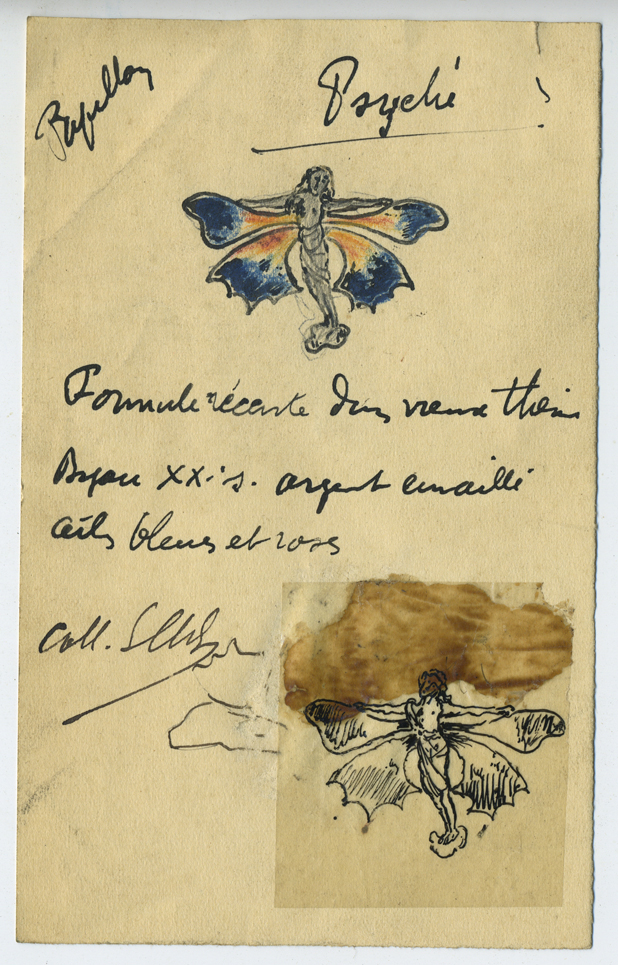 Papillon
Psyché
Formule récente dans vieux thème
Bijou XX: s. argent emaillé
ailes bleues et roses
Coll.